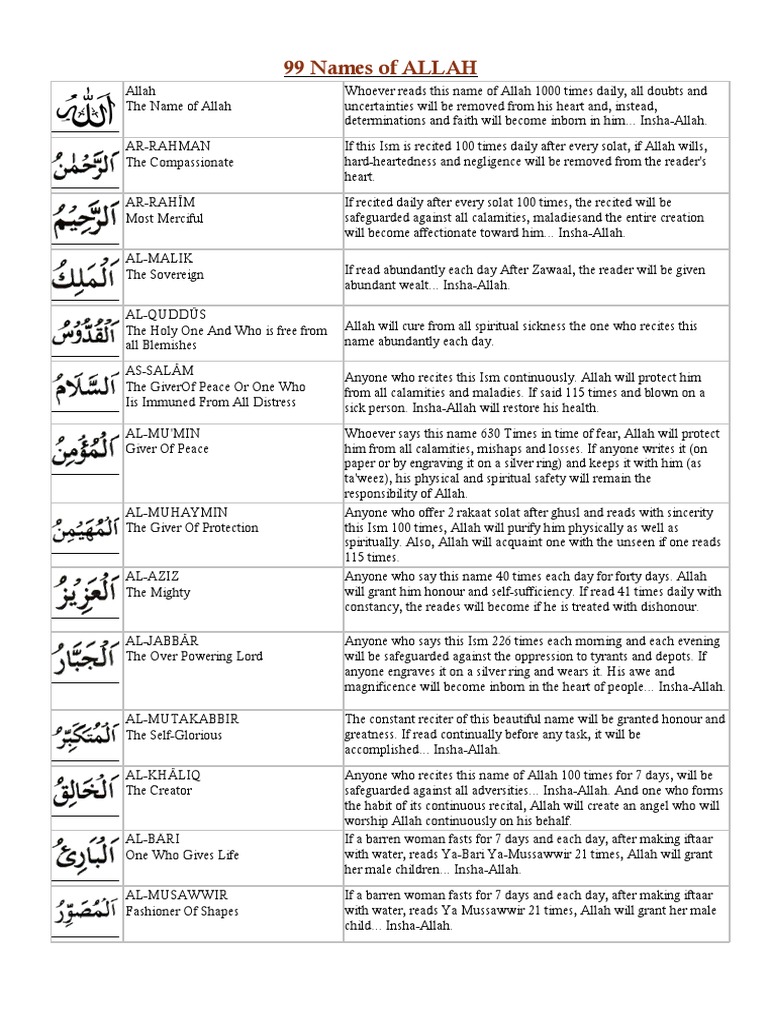 99 Names of ALLAH
اَللّٰهُ
Allah
The Name of Allah
Whoever reads this name of Allah 1000 times daily, all doubts and
uncertainties will be removed from his heart and, instead,
determinations and faith will become inborn in him... Insha-Allah.
اَلرَّحْمٰنُ
AR-RAHMAN
The Compassionate
If this Ism is recited 100 times daily after every solat, if Allah wills,
hard-heartedness and negligence will be removed from the reader's
heart.
اَلرَّحِيْمُ
AR-RAHÎM
Most Merciful
If recited daily after every solat 100 times, the recited will be
safeguarded against all calamities, maladiesand the entire creation
will become affectionate toward him... Insha-Allah.
اَلْمَلِكُ
AL-MALIK
The Sovereign
If read abundantly each day After Zawaal, the reader will be given
abundant wealt... Insha-Allah.
اَلْقُدُّوْسُ
AL-QUDDÛS
The Holy One And Who is free from
all Blemishes
Allah will cure from all spiritual sickness the one who recites this
name abundantly each day.
اَلسَّلَامُ
AS-SALÂM
The GiverOf Peace Or One Who
Iis Immuned From All Distress
Anyone who recites this Ism continuously. Allah will protect him
from all calamities and maladies. If said 115 times and blown on a
sick person. Insha-Allah will restore his health.
اَلْمُؤْمِنُ
AL-MU'MIN
Giver Of Peace
Whoever says this name 630 Times in time of fear, Allah will protect
him from all calamities, mishaps and losses. If anyone writes it (on
paper or by engraving it on a silver ring) and keeps it with him (as
ta'weez), his physical and spiritual safety will remain the
responsibility of Allah.
اَلْمُهَيْمِنُ
AL-MUHAYMIN
The Giver Of Protection
Anyone who offer 2 rakaat solat after ghusl and reads with sincerity
this Ism 100 times, Allah will purify him physically as well as
spiritually. Also, Allah will acquaint one with the unseen if one reads
115 times.
اَلْعَزِيْزُ
AL-AZIZ
The Mighty
Anyone who say this name 40 times each day for forty days. Allah
will grant him honour and self-sufficiency. If read 41 times daily with
constancy, the reades will become if he is treated with dishonour.
اَلْجَبَّارُ
AL-JABBÂR
The Over Powering Lord
Anyone who says this Ism 226 times each morning and each evening
will be safeguarded against the oppression to tyrants and depots. If
anyone engraves it on a silver ring and wears it. His awe and
magnificence will become inborn in the heart of people... Insha-Allah.
اَلْمُتَكَبِّرُ
AL-MUTAKABBIR
The Self-Glorious
The constant reciter of this beautiful name will be granted honour and
greatness. If read continually before any task, it will be
accomplished... Insha-Allah.
اَلْخَالِقُ
AL-KHÂLIQ
The Creator
Anyone who recites this name of Allah 100 times for 7 days, will be
safeguarded against all adversities... Insha-Allah. And one who forms
the habit of its continuous recital, Allah will create an angel who will
worship Allah continuously on his behalf.
اَلْبَارِئُ
AL-BARI
One Who Gives Life
If a barren woman fasts for 7 days and each day, after making iftaar
with water, reads Ya-Bari Ya-Mussawwir 21 times, Allah will grant
her male children... Insha-Allah.
اَلْمُصَوِّرُ
AL-MUSAWWIR
Fashioner Of Shapes
If a barren woman fasts for 7 days and each day, after making iftaar
with water, reads Ya Mussawwir 21 times, Allah will grant her male
child... Insha-Allah.